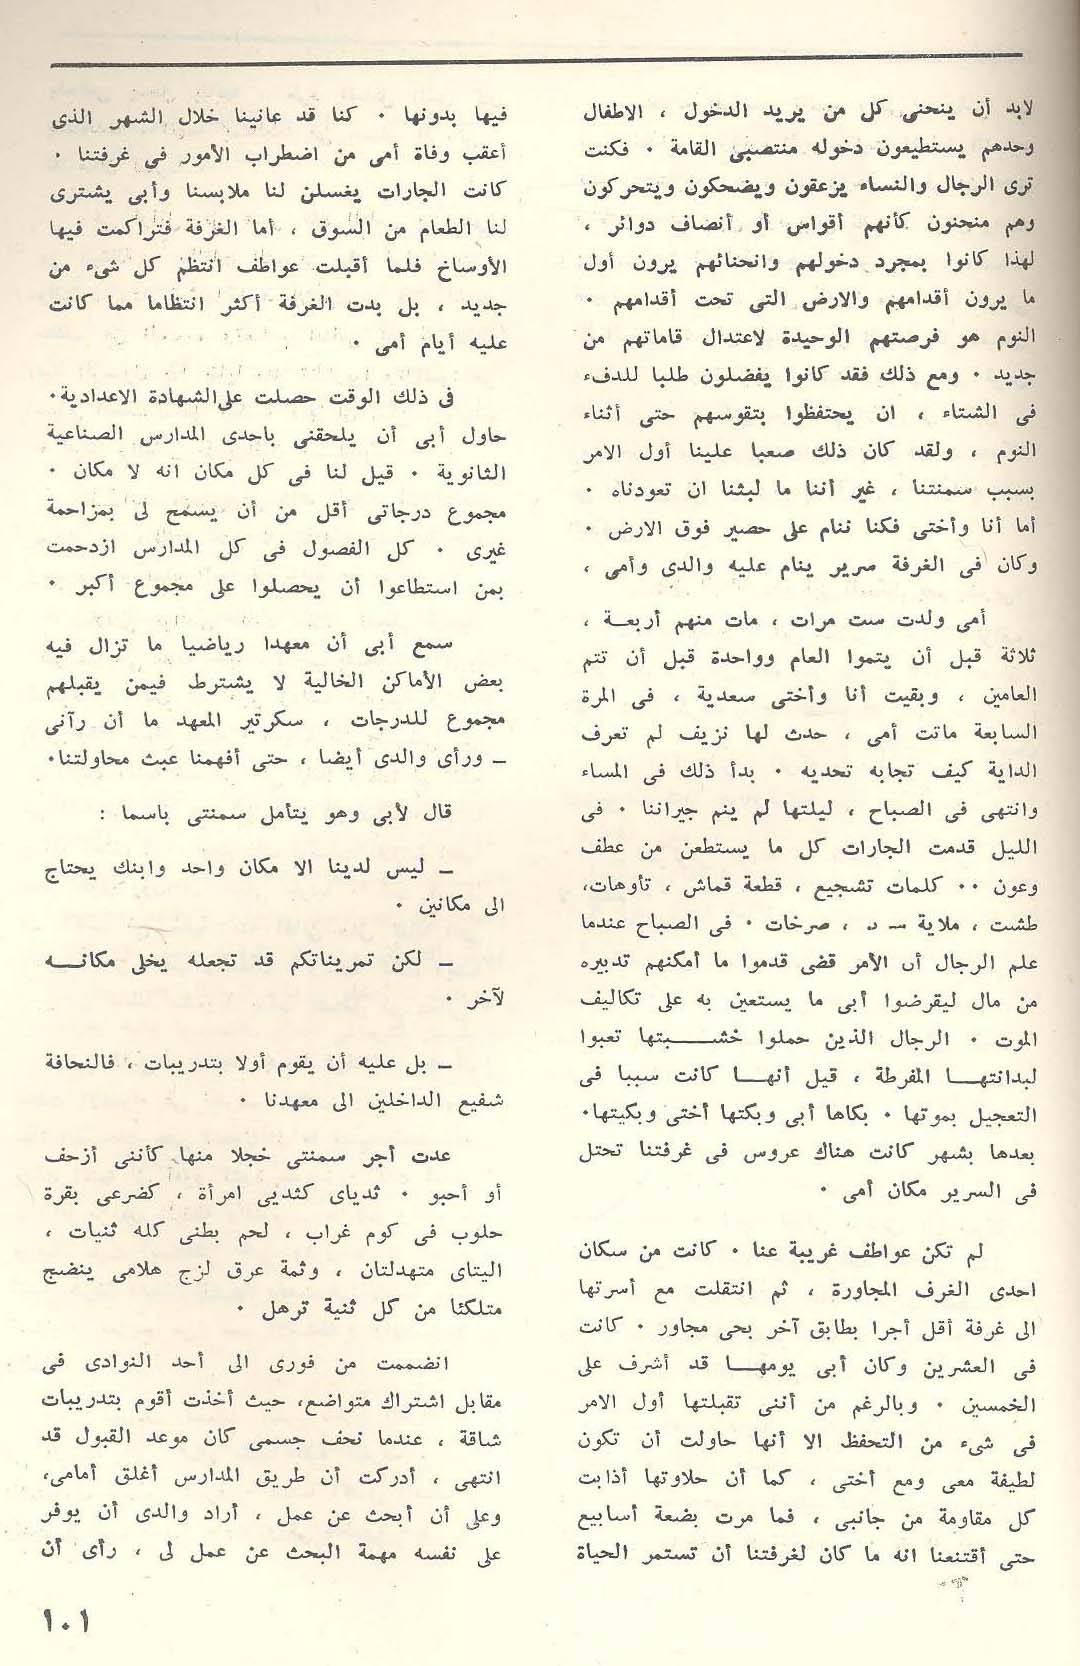 لابد أن ينحنى كل من يريد الدخول ، الاطفال
وحدهم يستطيعون دخوله منتصبى القامة ٠ فكنت
ترى الرجال والنساء يزعقون ويضحكون ويتحركون
وهم منحنون كأنهم أقواس أو أنصاف دوائر ،
لهذا كانوا بمجرد دخولهم وانحنائهم يرون أول
ما يرون أقدامهم والارض التى تحت أقدامهم ٠
النوم هو فرصتهم الوحيدة لاعتدال قاماتهم من
جديد ٠ ومع ذلك فقد كانوا يفضلون طلبا للدفء
فى الشتاء ، ان يحتفظوا بتقوسهم حتى أثناء
النوم ، ولقد كان ذلك صعبا علينا أول الامر
بسبب سمنتنا ، غير أننا ما لبثنا ان تعودناه ٠
أما أنا وأختى فكنا ننام على حصير فوق الارض ٠
وكان فى الغرفة سرير ينام عليه والدى وأمى ،
أمى ولدت ست مرات ، مات منهم أربعـة ،
ثلاثة قبل أن يتموا العام وواحدة قبل أن تتم
العامين ، وبقيت أنا وأختى سعدية ، فى المرة
السابعة ماتت أمى ، حدث لها نزيف لم تعرف
الداية كيف تجابه تحديه ٠ بدأ ذلك فى المساء
وانتهى فى الصباح ، ليلتها لم ينم جيراننا ٠ فى
الليل قدمت الجارات كل ما يستطعن من عطف
وعون ٠٠ كلمات تشجيع ، قطعة قماش ، تأوهات،
طشت ، ملاية ــ د. ، صرخات ٠ فى الصباح عندما
علم الرجال أن الأمر قضى قدموا ما أمكنهم تدبيره
من مال ليقرضوا أبى ما يستعين به على تكاليف
الموت ٠ الرجال الذين حملوا خشـــبتها تعبوا
لبدانتهـا المفرطة ، قيل أنهـا كانت سببا فى
التعجيل بموتها ٠ بكاها أبى وبكتها أختى وبكيتها٠
بعدها بشهر كانت هناك عروس فى غرفتنا تحتل
فى السرير مكان أمى ٠
لم تكن عواطف غريبة عنا ٠ كانت من سكان
احدى الغرف المجاورة ، ثم انتقلت مع أسرتها
الى غرفة أقل أجرا بطابق آخر بحى مجاور ٠ كانت
فى العشرين وكان أبى يومهـا قد أشرف على
الخمسين ٠ وبالرغم من أننى تقبلتها أول الامر
فى شىء من التحفظ الا أنها حاولت أن تكون
لطيفة معى ومع أختى ، كما أن حلاوتها أذابت
كل مقاومة من جانبى ، فما مرت بضعة أسابيع
حتى أقتنعنا انه ما كان لغرفتنا أن تستمر الحياة
فيها بدونها ٠ كنا قد عانينا خلال الشهر الذى
أعقب وفاة أمى من اضطراب الأمور فى غرفتنا ٠
كانت الجارات يغسلن لنا ملابسنا وأبى يشترى
لنا الطعام من السوق ، أما الغرفة فتراكمت فيها
الأوساخ فلما أقبلت عواطف انتظم كل شىء من
جديد ، بل بدت الغرفة أكثر انتظاما مما كانت
عليه أيام أمى ٠
فى ذلك الوقت حصلت على الشهادة الاعدادية٠
حاول أبى أن يلحقنى باحدى المدارس الصناعية
الثانوية ٠ قيل لنا فى كل مكان انه لا مكان ٠
مجموع درجاتى أقل من أن يسمح لى بمزاحمة
غيرى ٠ كل الفصول فى كل المدارس ازدحمت
بمن استطاعوا أن يحصلوا على مجموع أكبر ٠
سمع أبى أن معهدا رياضيا ما تزال فيه
بعض الأماكن الخالية لا يشترط فيمن يقبلهم
مجموع للدرجات ، سكرتير المعهد ما أن رآنى
ــ ورأى والدى أيضا ، حتى أفهمنا عبث محاولتنا٠
قال لأبى وهو يتأمل سمنتى باسما :
ــ ليس لدينا الا مكان واحد وابنك يحتاج
الى مكانين ٠
ــ لكن تمريناتكم قد تجعله يخلى مكانـــه
لآخر ٠
ــ بل عليه أن يقوم أولا بتدريبات ، فالنحافة
شفيع الداخلين الى معهدنا ٠
عدت أجر سمنتى خجلا منها، كأننى أزحف
أو أحبو ٠ ثدياى كثديى امرأة ، كضرعى بقرة
حلوب فى كوم غراب ، لحم بطنى كله ثنيات ،
اليتاى متهدلتان ، وثمة عرق لزج هلامى ينضج
متلكئا من كل ثنية ترهل ٠
انضممت من فورى الى أحد النوادى فى
مقابل اشتراك متواضع، حيث أخذت أقوم بتدريبات
شاقة ، عندما نحف جسمى كان موعد القبول قد
انتهى ، أدركت أن طريق المدارس أغلق أمامى،
وعلى أن أبحث عن عمل ، أراد والدى أن يوفر
على نفسه مهمة البحث عن عمل لى ، رأى أن
١٠١